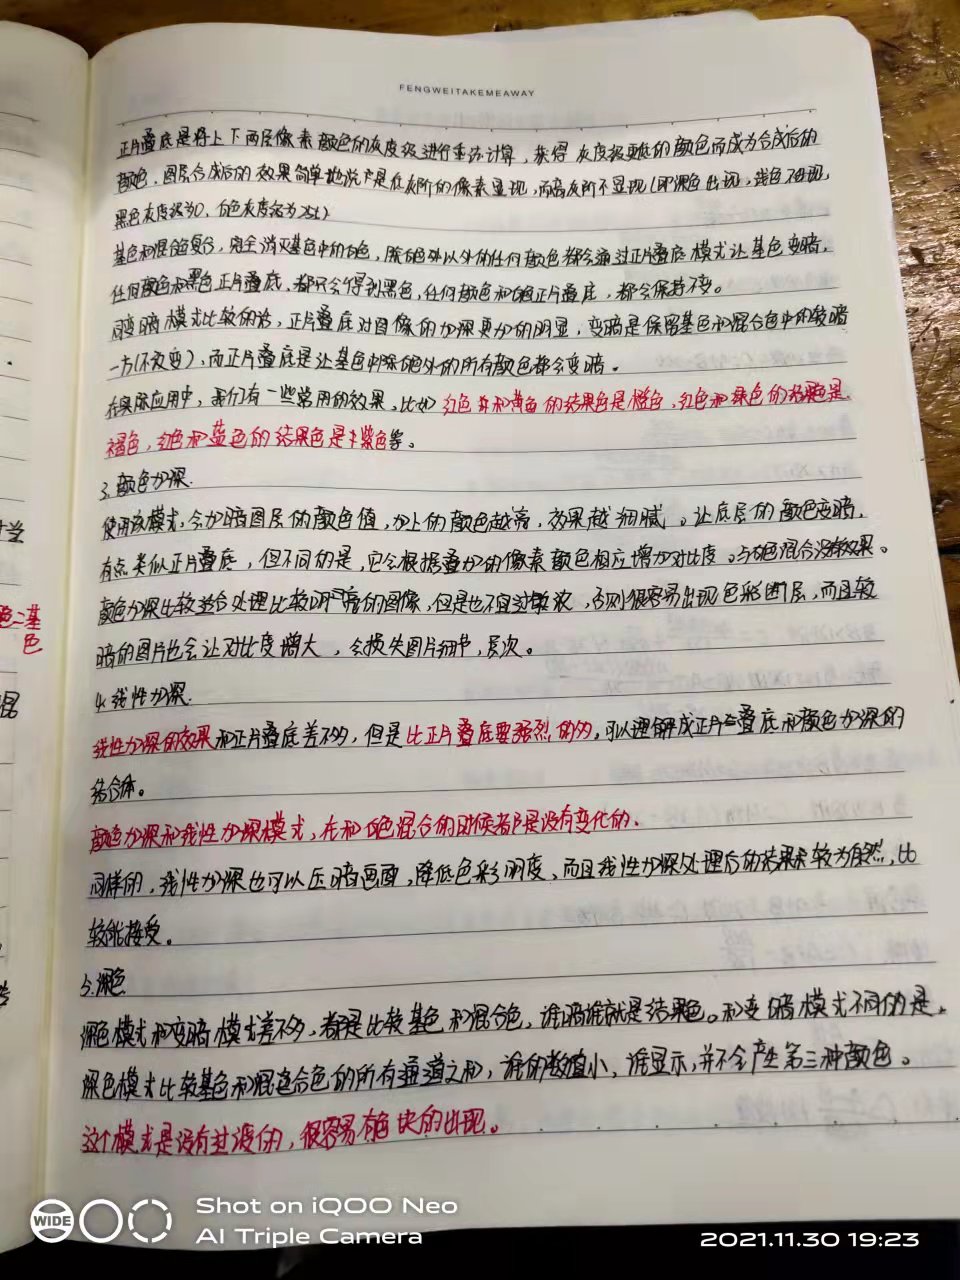 FENGWEITAKEMEAWAY
正片叠底是将上下两层像素颜色的灰度级进行乘法计算，获得灰度级更低的颜色而成为合成后的
颜色，图层合成后的效果简单地说是在灰阶的像素显现，而高灰阶不显现（即深色出现，浅色不出现，
黑色灰度级为0，白色灰度级为255）
基色和混合色复合，完全消灭基色中的白色，除白色外以外的任何颜色都会通过正片叠底模式让基色变暗，
任何颜色和黑色正片叠底，都只会得到黑色，任何颜色和白色正片叠底，都会保持不变。
同变暗模式比较的话，正片叠底对图像的加深更加的明显，变暗是保留基色和混合色中的较暗
一方（不改变），而正片叠底是让基色中除白色外的所有颜色都会变暗。
在实际应用中，我们有一些常用的效果，比如红色和黄色的结果色是橙色，红色和绿色的结果色是
褐色，红色和蓝色的结果色是紫色等。
3.颜色加深.
使用该模式，会加暗图层的颜色值，加上的颜色越亮，效果越细腻。让底层的颜色变暗，
有点类似正片叠底，但不同的是，它会根据叠加的像素颜色相应增加对比度。与白色混合没有效果。
颜色加深比较适合处理比较明亮的图像，但是也不宜过浓，否则很容易出现色彩断层，而且较
暗的图片也会让对比度增大，会损失图片细节，层次。
4.线性加深.
线性加深的效果和正片叠底差不多，但是比正片叠底要强烈的多，可以理解成正片叠底和颜色加深的
结合体。
颜色加深和线性加深模式，在和白色混合的时候都是没有变化的.
同样的，线性加深也可以压暗画面，降低色彩明度，而且线性加深处理后的结果较为自然，比
较能接受。
5.深色
深色模式和变暗模式差不多，都是比较基色和混合色，谁暗谁就是结果色。和变暗模式不同的是，
深色模式比较基色和混合色的所有通道之和，谁的数值小，谁显示，并不会产生第三种颜色。
这个模式是没有过渡的，很容易有色块的出现。
色=基
色
混
WIDE
Shot on iQOO Neo
AI Triple Camera
2021.11.30 19:23